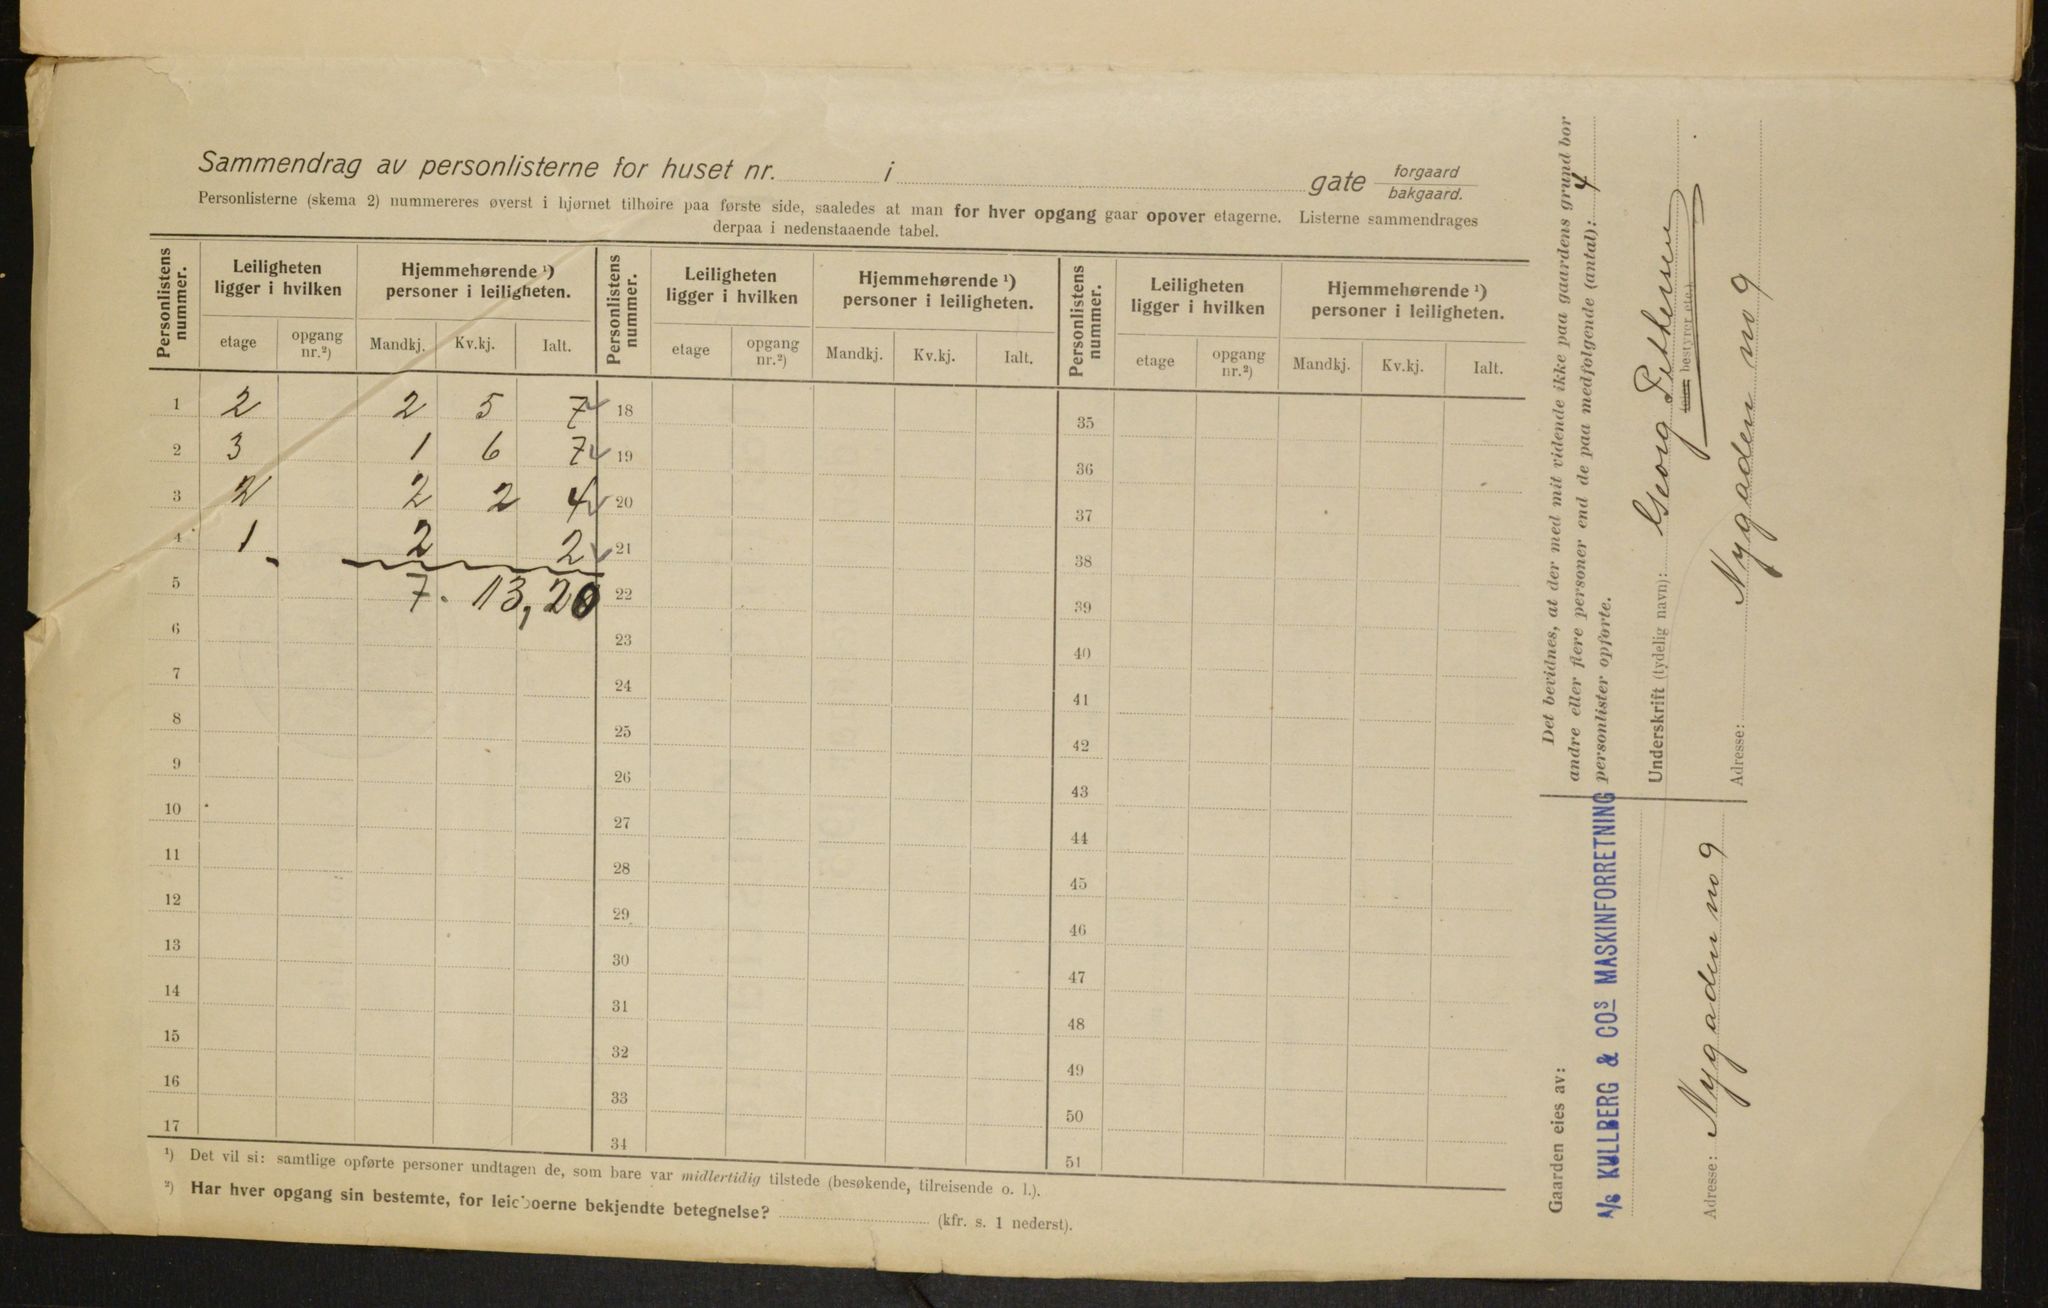 Sammendrag av personlisterne for huset nr. i gate forgaard
bakgaard.
Personlisterne (skema 2) nummereres øverst i hjørnet tilhøire paa første side, saaledes at man for hver opgang gaar opover etagerne. Listerne sammendrages
derpaa i nedenstaaende tabel.
Personlistens nummer. Leiligheten ligger i hvilken Hjemmehørende ¹) personer i leiligheten. Personlistens nummer. Leiligheten ligger i hvilken Hjemmehørende ¹) personer i leiligheten. Personlistens nummer. Leiligheten ligger i hvilken Hjemmehørende ¹) personer i leiligheten.
etage opgang nr.²) Mandkj. Kv.kj. Ialt. etage opgang nr.²) Mandkj. Kv.kj. Ialt. etage opgang nr.²) Mandkj. Kv.kj. Ialt.
1 2 2 5 7 18 35
2 3 1 6 7 19 36
3 2 2 2 4 20 37
4 1 2 2 21 38
5 7. 13, 20 22 39
6 23 40
7 24 41
8 25 42
9 26 43
10 27 44
11 28 45
12 29 46
13 30 47
14 31 48
15 32 49
16 33 50
17 34 51
¹) Det vil si: samtlige opførte personer undtagen de, som bare var midlertidig tilstede (besøkende, tilreisende o. l.).
²) Har hver opgang sin bestemte, for leieboerne bekjendte betegnelse? (kfr. s. 1 nederst).
Det bevidnes, at der med mit vidende ikke paa gaardens grund bor
andre eller flere personer end de paa medfølgende (antal): 4
personlister opførte.
Underskrift (tydelig navn): Georg Pettersen
bestyrer etc.)
Adresse: Nygaden no 9
Gaarden eies av:
A/S KULLBERG & COS MASKINFORRETNING
Adresse: Nygaden no 9